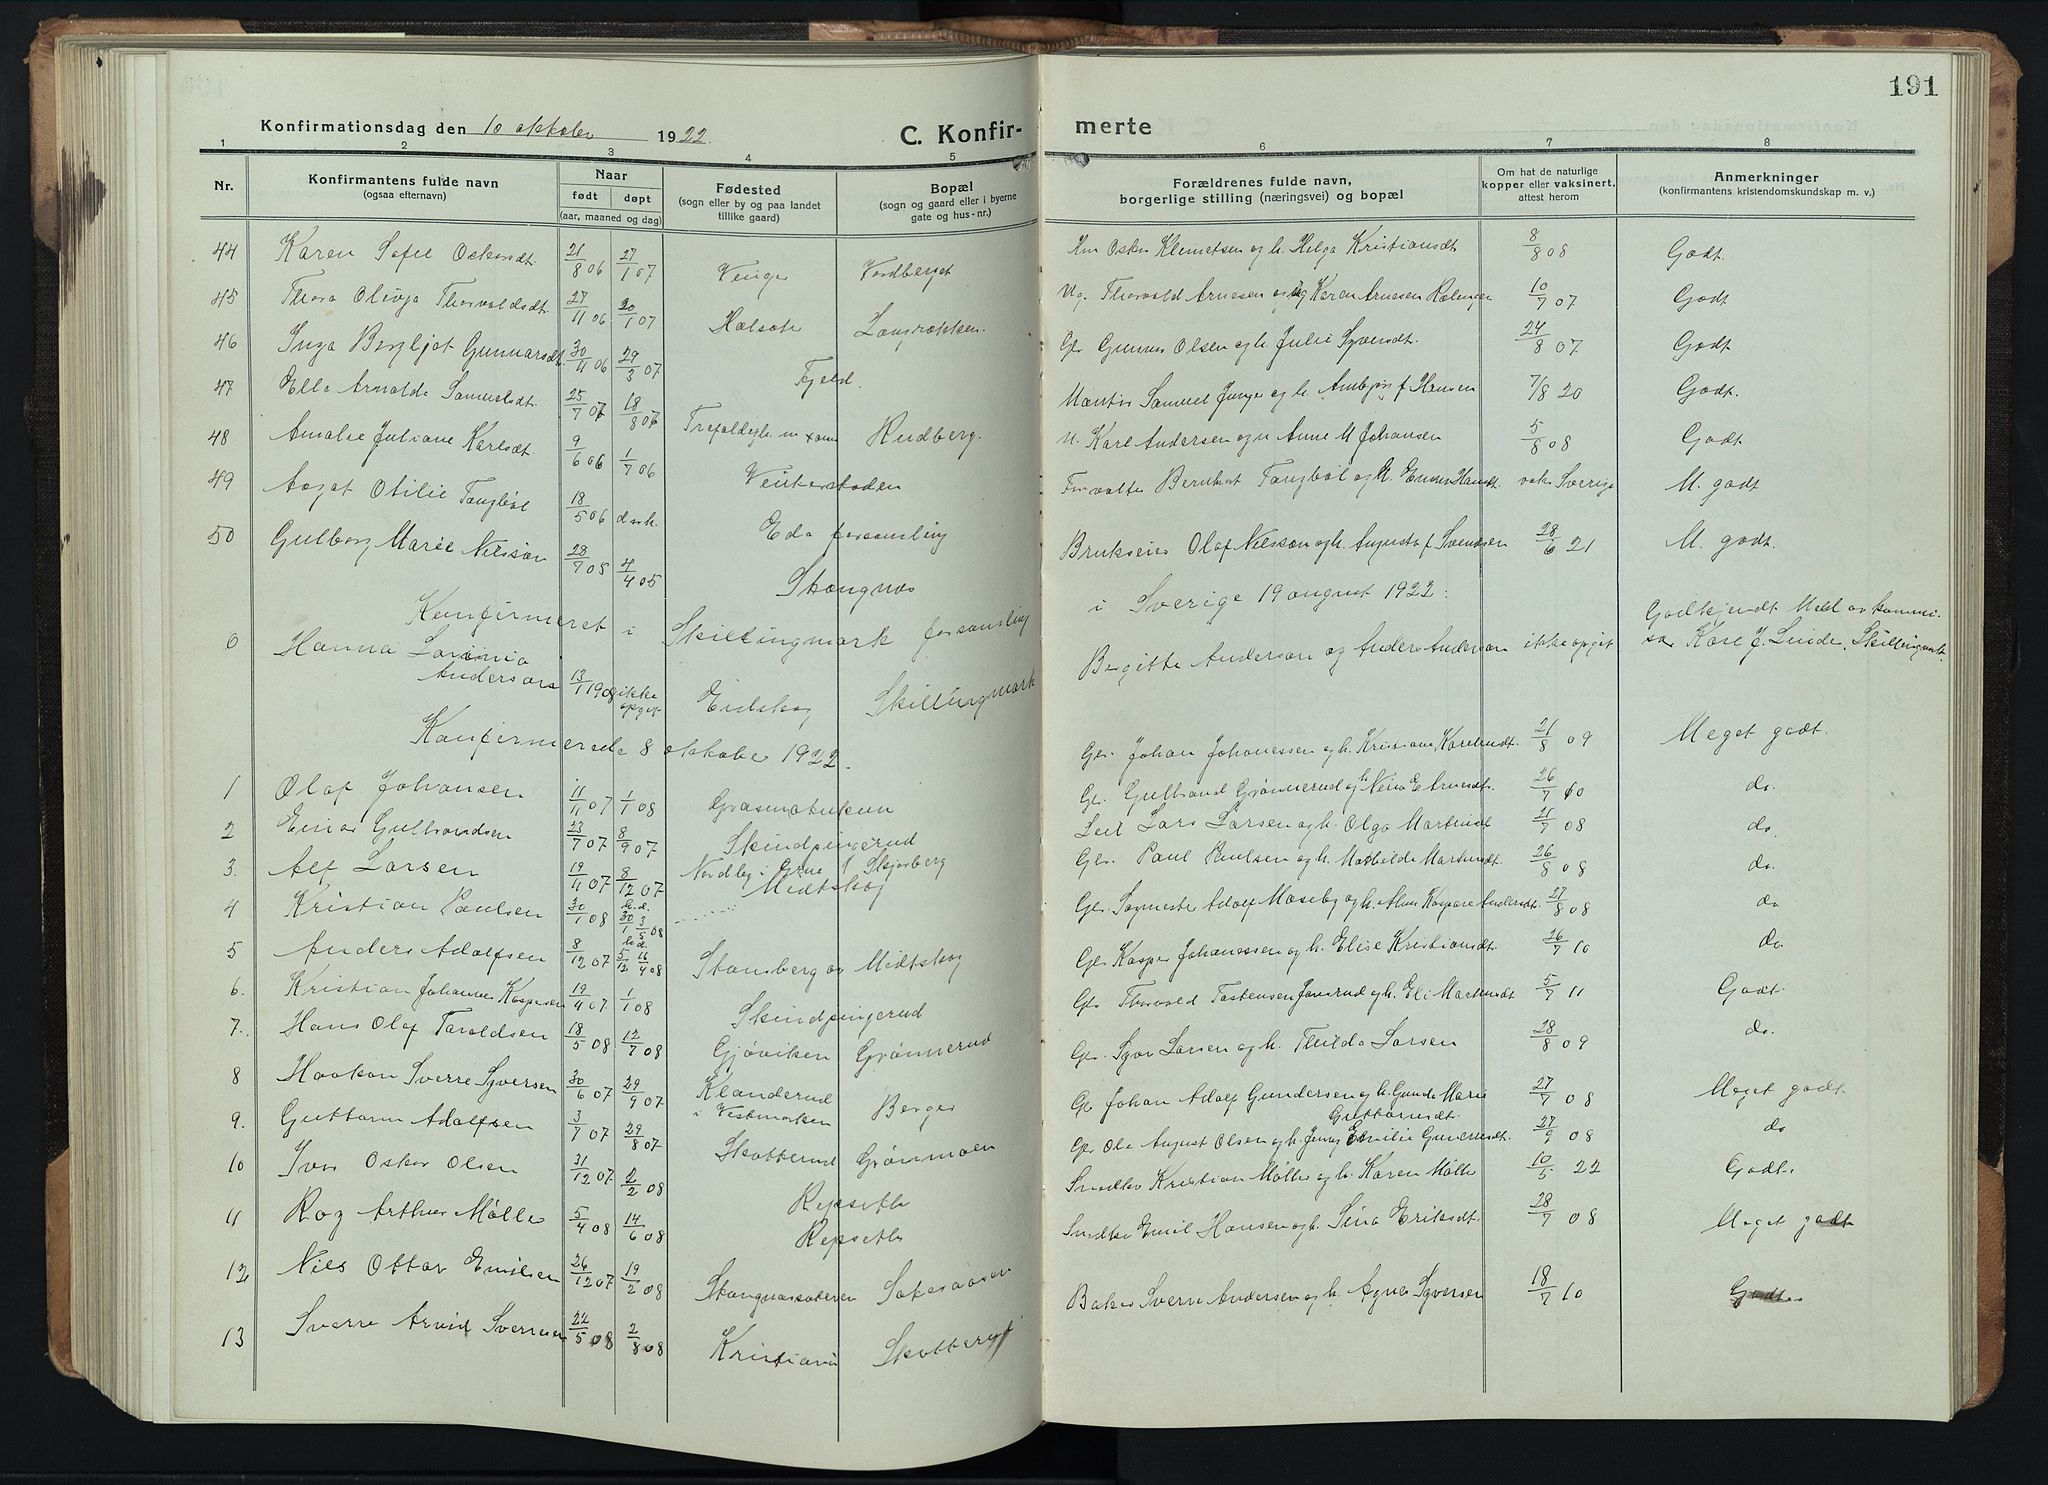 191
Konfirmationsdag den 10 oktober 1922. C. Konfir- merte
1 2 3 4 5 6 7 8
Nr. Konfirmantens fulde navn (ogsaa efternavn) Naar født døpt (aar, maaned og dag) Fødested (sogn eller by og paa landet tillike gaard) Bopæl (sogn og gaard eller i byerne gate og hus-nr.) Forældrenes fulde navn, borgerlige stilling (næringsvei) og bopæl Om hat de naturlige kopper eller vaksinert, attest herom Anmerkninger (konfirmantens kristendomskundskap m. v.)
44 Karen Sofie Oskarsdt. 21/8 06 27/1 07 Venger Vardberget Km Oskar Klemetsen og h. Helga Kristiansdt 8/8 08 Godt.
45 Thora Olivja Thorvaldsdt. 27/11 06 20/1 07 Halsete Langrækken. Ug. Thorvald Arnesen og Ug Karen Arnesen 10/7 07 Godt
46 Inga Bergljot Gunnarsdt. 30/11 06 29/3 07 Fjeld. Gbr Gunnar Olsen og h. Julie Syversdt. 24/8 07 Godt
47 Ella Arnolda Samuelsdt. 25/7 07 18/8 07 Rudberg. Samuel og h. f Hansen 7/8 20 Godt.
48 Amalie Juliane Karlsdt. 9/6 06 1/7 06 Vinterstaden U. Karl Andersen og u Anne M Johansen 5/8 08 Godt
49 Otilie Tangbøl 18/5 06 Eda forsamling Forvalter Bernhart Tangbøl og h. Emma Hansdt. vak Sverige M. godt
50 Gulborg Marie Nilsson 28/7 08 4/4 05 Skangnæs Brukseier Olaf Nilsson og h. Augusta f Svendsen 28/6 21 M. godt.
Konfirmeret i Skillingmark forsamling i Sverige 19 august 1922:
0 Hanna Lavinia Anderson 13/1 1908 ikke opget Eidskog Skillingmark Bergitte Anderson og Anders Anderson ikke opgit Godkjendt Meld av kommi- sar Karl J. Linde, Skillingmark.
Konfirmerede 8 oktober 1922.
1 Olaf Johansen 11/11 07 1/1 08 Græsmakuken Gbr. Johan Johanessen og h. Kristiane Karlsdt. 21/8 09 Meget godt.
2 Einar Gulbrandsen 23/7 07 8/9 07 Skindpungerud Gbr. Gulbrand Grønnerud og h Nina E Arnesdt. 26/7 10 do.
3. Alf Larsen 19/11 07 8/12 07 Nordby i Grue Skjørberg Leil Lars Larsen og h. Olga Martinsdt 21/7 08 do
4 Kristian Paulsen 30/1 08 h.d. 30/1 3/5 08 Midtskog Gbr. Paul Paulsen og h. Mathilde Martinsdt. 26/8 08 do
5 Anders Adolfsen 8/12 07 h.d. 5/12 16/4 08 Stansberg av Midtskog Gbr. Adolf Moseby og h. Kaspara Andersdt. 21/8 08 do
6. Kristian Johannes Kaspersen 19/4 07 1/1 08 Skindpungerud Gbr Kasper Johanessen og h. Elise Kristiansdt. 26/7 10 do.
7. Hans Olaf Taraldsen 18/5 08 12/7 08 Gjøviken Grønnerud Gbr Thorvald Tostensen og h. Eli Martinsdt 5/7 11 Godt.
8 Haakon Sverre Syversen 30/6 07 29/9 07 Klanderud i Vestmarken Berger Gbr. Syver Larsen og h. Thilda Larsen 28/8 09 do.
9. Guttorm Adolfsen 3/7 07 29/8 07 Skotterud Grønmoen Gbr Johan Adolf Gundersen og h. Gunda Marie Guttormsdt. 27/7 08 Meget godt
10 Ivar Oskar Olsen 31/12 07 2/2 08 Repsetbr Gbr Ole August Olsen og h. Emilie Gundersdt. 27/9 08 do
11 Roy Arthur Møller 5/4 08 14/6 08 Repsetbr Snedker Kristian Møller og h. Karen Møller 10/5 22 Godt.
12 Nils Ottar Emilsen 26/12 07 19/2 08 Skangnæssæteren Sakesaasen Snedker Emil Hansen og h. Sina Eriksdt. 28/7 08 Meget godt
13 Sverre Arvid Sverresen 22/5 08 2/8 08 Kristiania Skotteryd Baker Sverre Andersen og h. Agnes Syversen 18/7 10 Godt